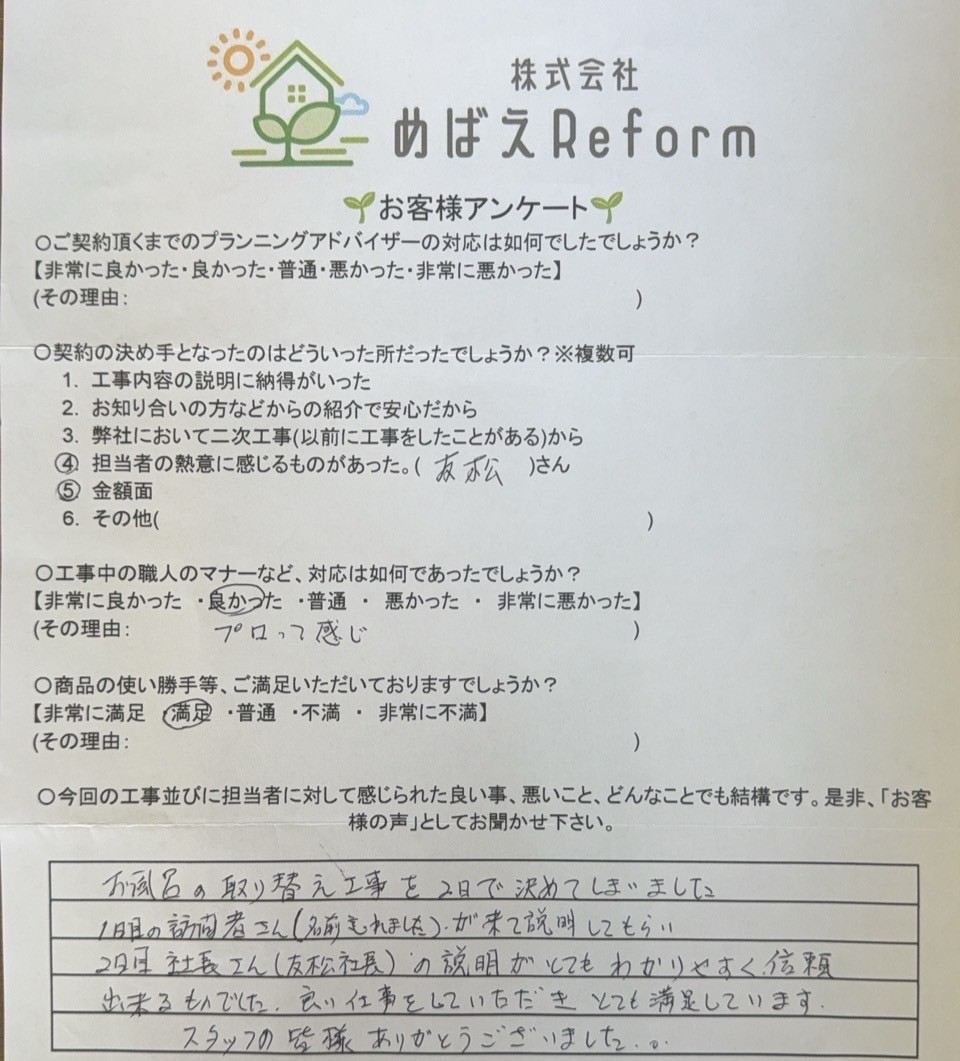 株式会社
めばえReform
お客様アンケート
〇ご契約頂くまでのプランニングアドバイザーの対応は如何でしたでしょうか？
【非常に良かった・良かった・普通・悪かった・非常に悪かった】
(その理由： )
〇契約の決め手となったのはどういった所だったでしょうか？※複数可
1. 工事内容の説明に納得がいった
2. お知り合いの方などからの紹介で安心だから
3. 弊社において二次工事(以前に工事をしたことがある)から
④ 担当者の熱意に感じるものがあった。( 友松 )さん
⑤ 金額面
6. その他( )
〇工事中の職人のマナーなど、対応は如何であったでしょうか？
【非常に良かった ・良かった ・普通 ・ 悪かった ・ 非常に悪かった】
(その理由： プロって感じ )
〇商品の使い勝手等、ご満足いただいておりますでしょうか？
【非常に満足 ・満足 ・普通 ・不満 ・ 非常に不満】
(その理由： )
〇今回の工事並びに担当者に対して感じられた良い事、悪いこと、どんなことでも結構です。是非、「お客
様の声」としてお聞かせ下さい。
お風呂の取り替え工事を2日で決めてしまいました
1日目の訪問者さん(名前忘れました)が来て説明してもらい
2日目 社長さん(友松社長)の説明がとてもわかりやすく信頼
出来るものでした。良い仕事をしていただきとても満足しています.
スタッフの皆様ありがとうございました..。